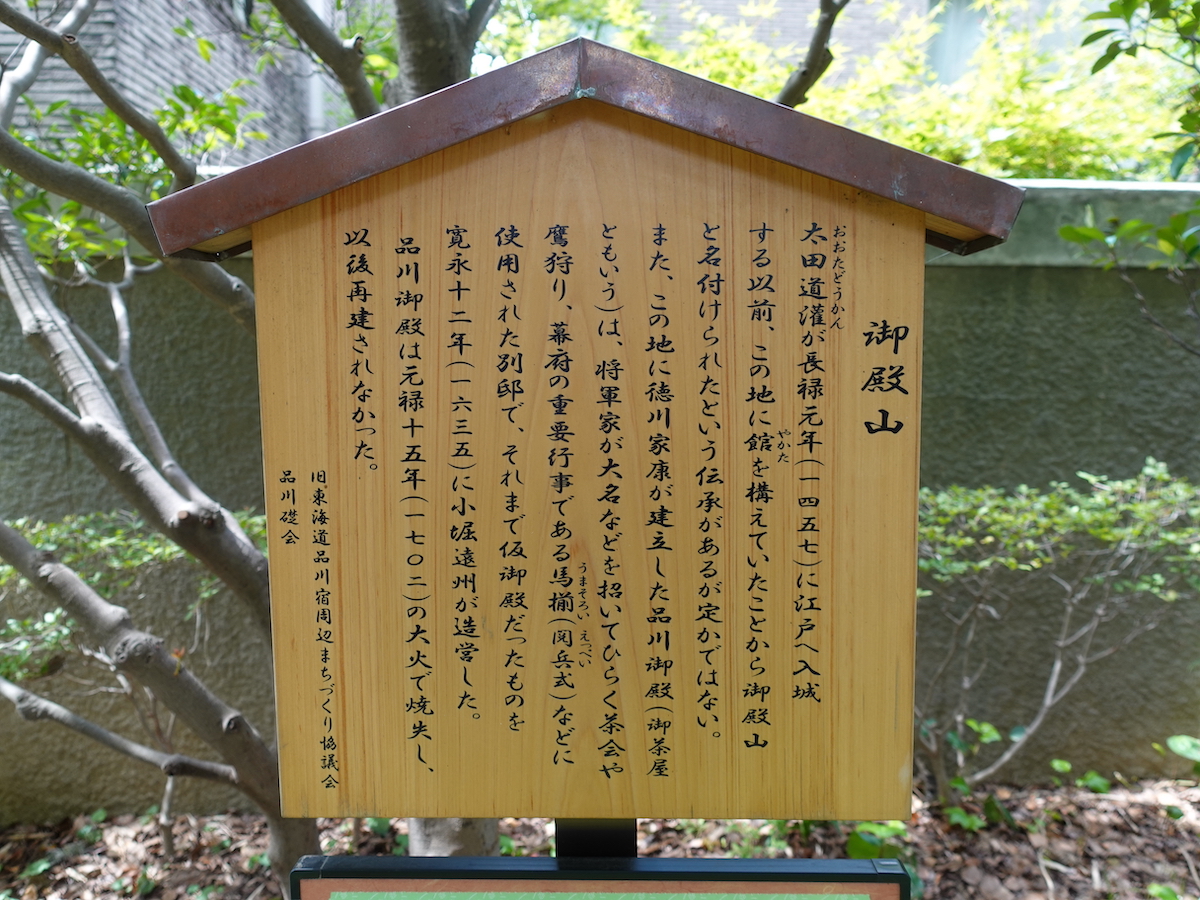 御殿山
太田道灌が長禄元年(一四五七)に江戸へ入城
おおたどうかん
する以前、この地に館を構えていたことから御殿山
やかた
と名付けられたという伝承があるが定かではない。
また、この地に徳川家康が建立した品川御殿(御茶屋
ともいう)は、将軍家が大名などを招いてひらく茶会や
鷹狩り、幕府の重要行事である馬揃(閲兵式)などに
うまぞろい えっぺい
使用された別邸で、それまで仮御殿だったものを
寛永十二年(一六三五)に小堀遠州が造営した。
品川御殿は元禄十五年(一七〇二)の大火で焼失し、
以後再建されなかった。
旧東海道品川宿周辺まちづくり協議会
品川礎会